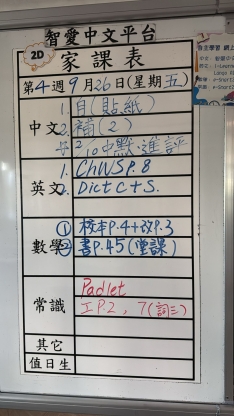 智愛中文平台
2D
家課表
第4週9月26日(星期五)
中文
1. 自(貼紙)
2. 補(2)
2/10中默、進評
英文
1. ChWS P.8
2. Dict C + S.
數學
① 校本P.4+改P.3
② 書P.45(堂課)
常識
Padlet
工P.2,7(詞三)
其它
值日生